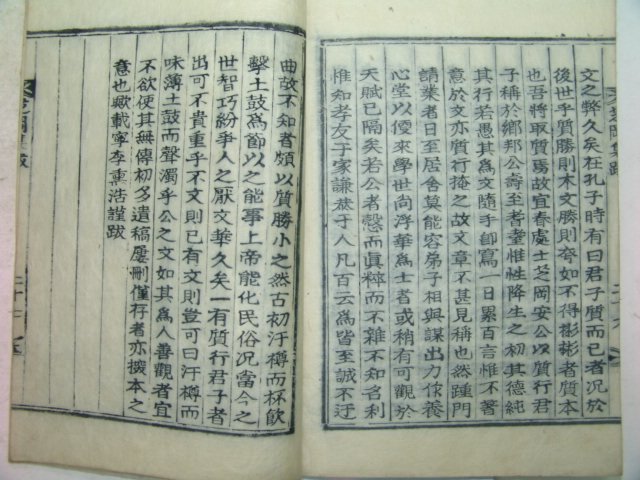 文之弊久矣在孔子時有曰君子質而已者況於
後世乎質勝則木文勝則奓如不得彬彬者質本
也吾將取質焉故宜春處士芝岡安公以質行君
子稱於鄉邦公壽至耆耋惟性降生之初其德純
其行若愚其爲文隨手卽寫一日累百言惟不著
意於文亦質行掩之故文章不甚見稱也然踵門
請業者日至居舍莫能容弟子相與謀出力作養
心堂以倭來學世向浮華爲士者或稍有可觀於
天賦已隔矣若公者慤而眞粹而不雜不知名利
惟知孝友于家謙恭于人凡百云爲皆至誠不迂
曲故不知者頗以質勝小之然古初汙樽而杯飮
擊土鼓爲節以之能事上帝能化民俗況當今之
世智巧紛爭人之厭文華久矣一有質行君子者
出可不貴重乎不文則已有文則豈可曰汙樽而
味薄土鼓而聲濁乎公之文如其爲人善觀者宜
不欲使其無傳初多遺稿屢刪僅存者亦擬本之
意也歟載寧李熏浩謹跋